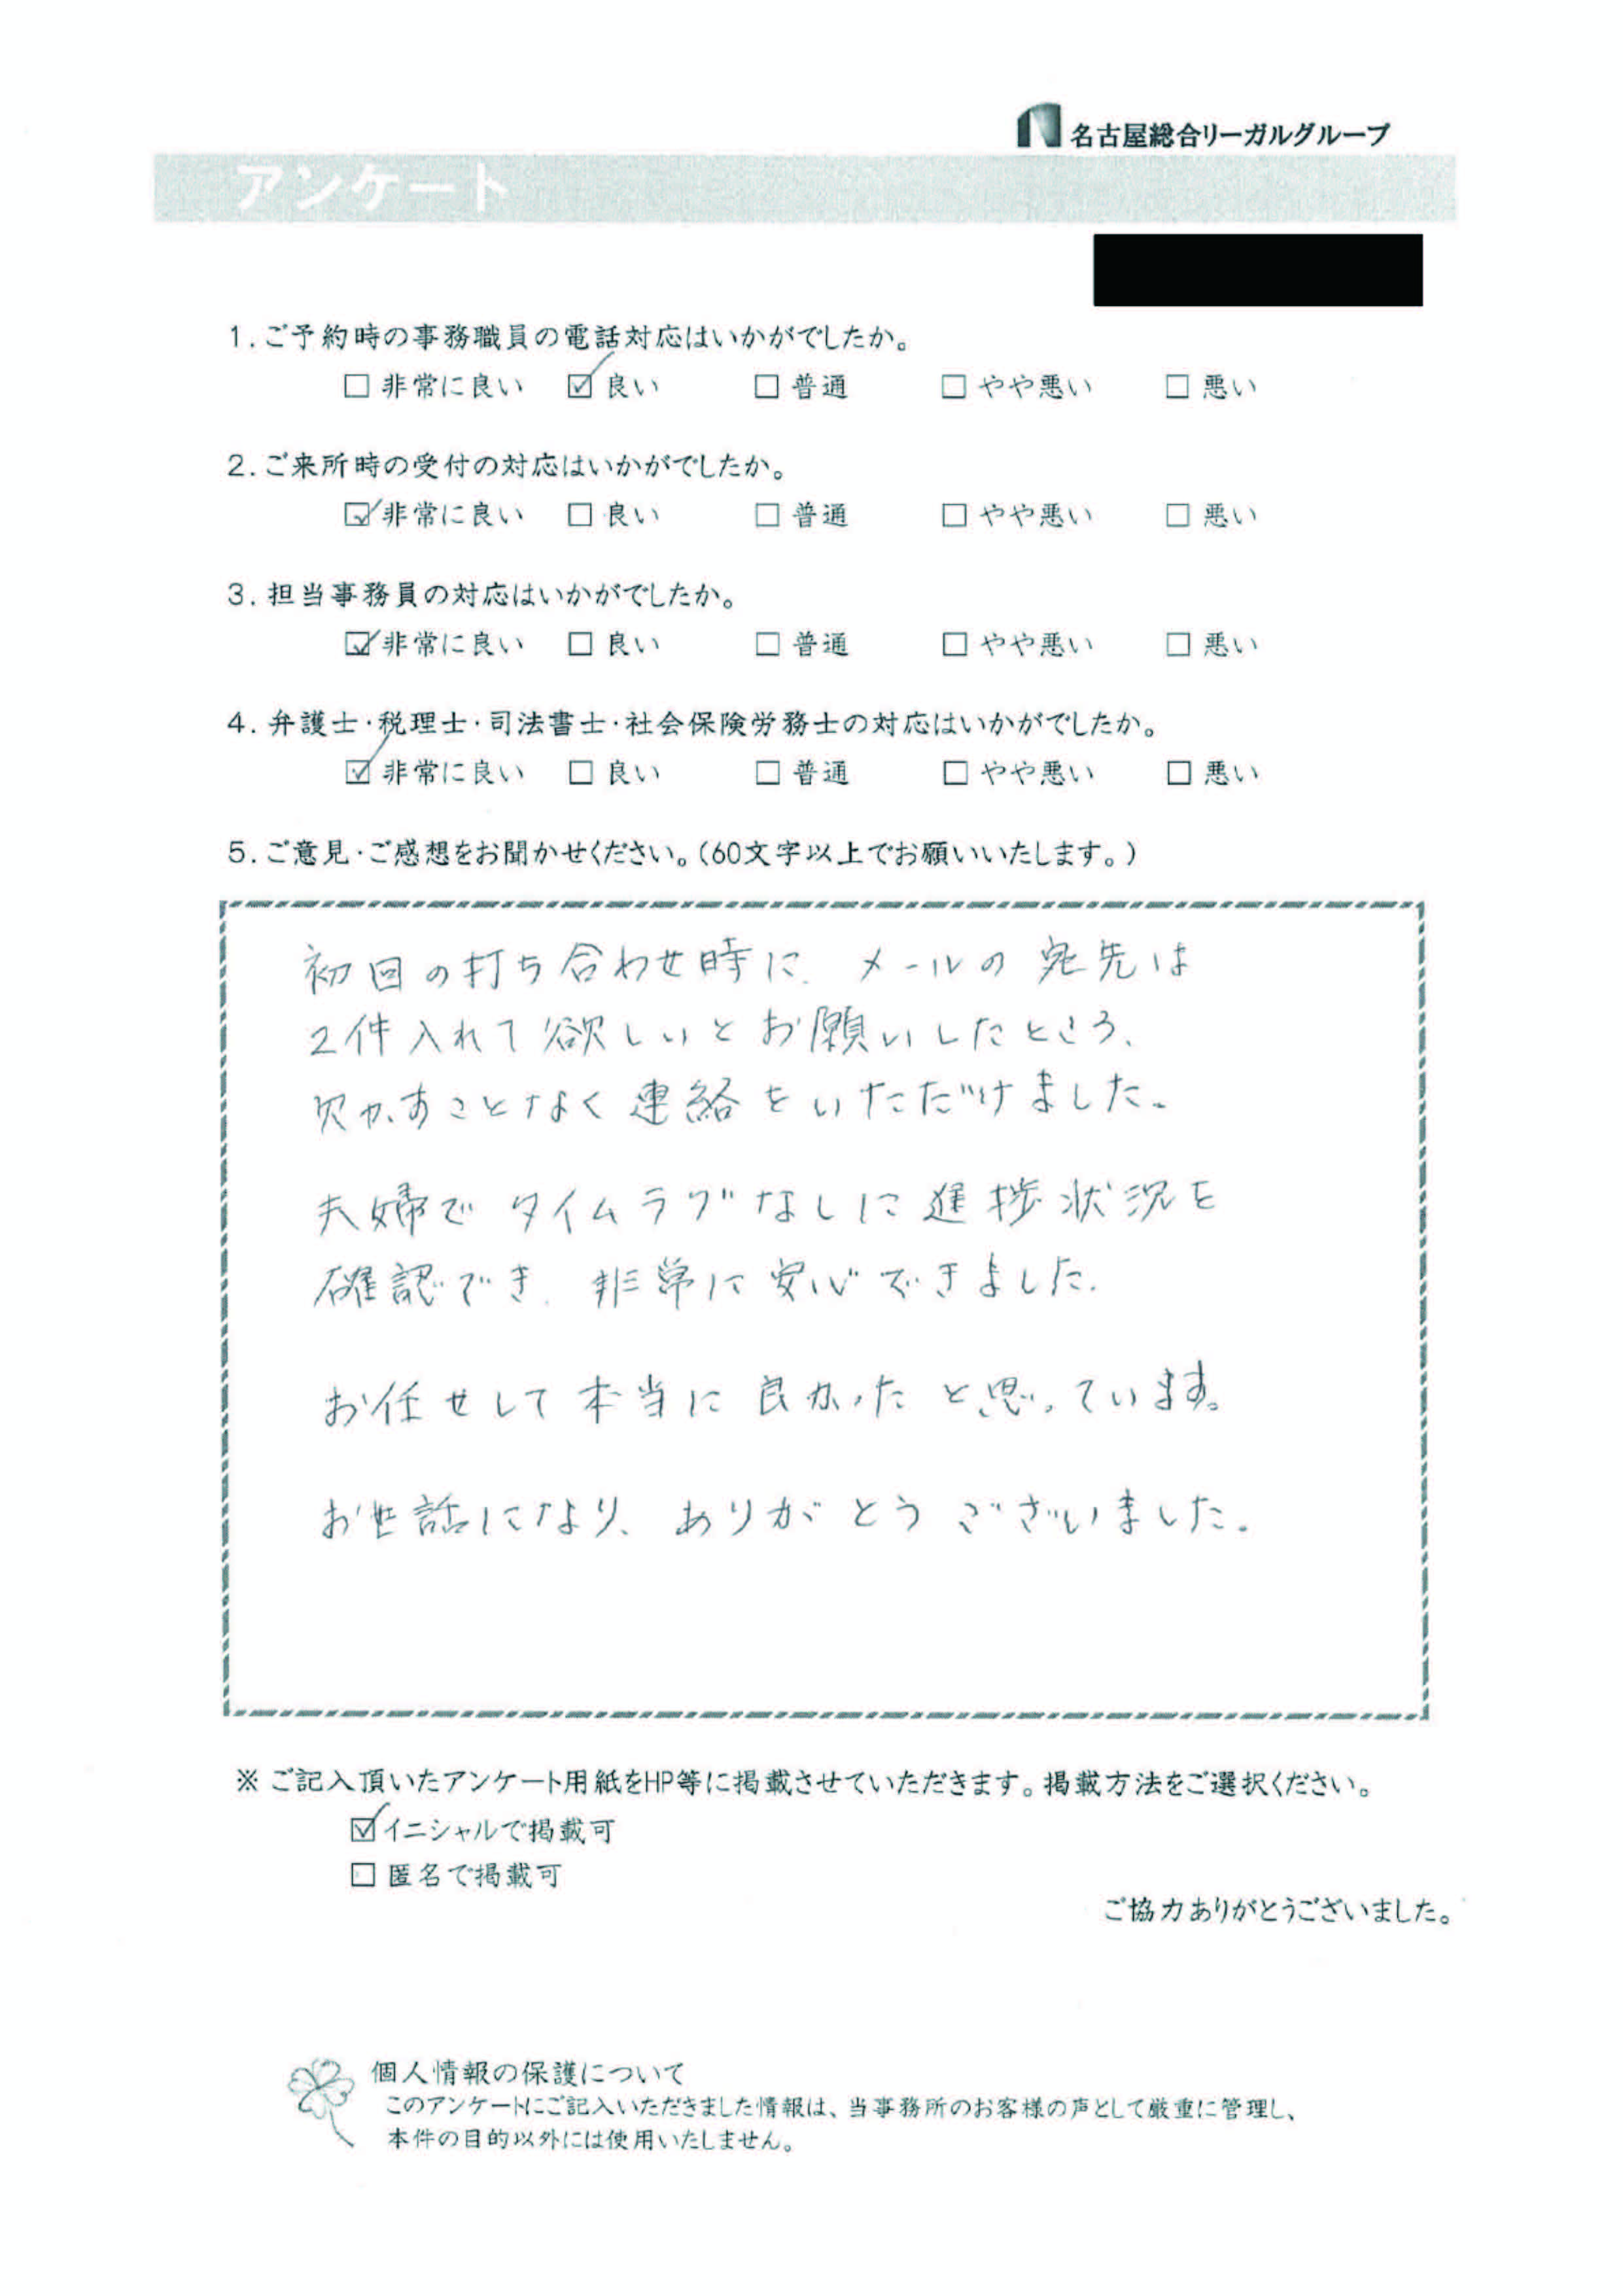 名古屋総合リーガルグループ
アンケート
1.ご予約時の事務職員の電話対応はいかがでしたか。
□ 非常に良い ☑ 良い □ 普通 □ やや悪い □ 悪い
2.ご来所時の受付の対応はいかがでしたか。
☑ 非常に良い □ 良い □ 普通 □ やや悪い □ 悪い
3.担当事務員の対応はいかがでしたか。
☑ 非常に良い □ 良い □ 普通 □ やや悪い □ 悪い
4.弁護士・税理士・司法書士・社会保険労務士の対応はいかがでしたか。
☑ 非常に良い □ 良い □ 普通 □ やや悪い □ 悪い
5.ご意見・ご感想をお聞かせください。(60文字以上でお願いいたします。)
初回の打ち合わせ時に、メールの宛先は
2件入れて欲しいとお願いしたところ、
欠かすことなく連絡をいただけました。
夫婦でタイムラグなしに進捗状況を
確認でき、非常に安心できました。
お任せして本当に良かったと思っています。
お世話になり、ありがとうございました。
※ご記入頂いたアンケート用紙をHP等に掲載させていただきます。掲載方法をご選択ください。
☑イニシャルで掲載可
□ 匿名で掲載可
ご協力ありがとうございました。
個人情報の保護について
このアンケートにご記入いただきました情報は、当事務所のお客様の声として厳重に管理し、
本件の目的以外には使用いたしません。